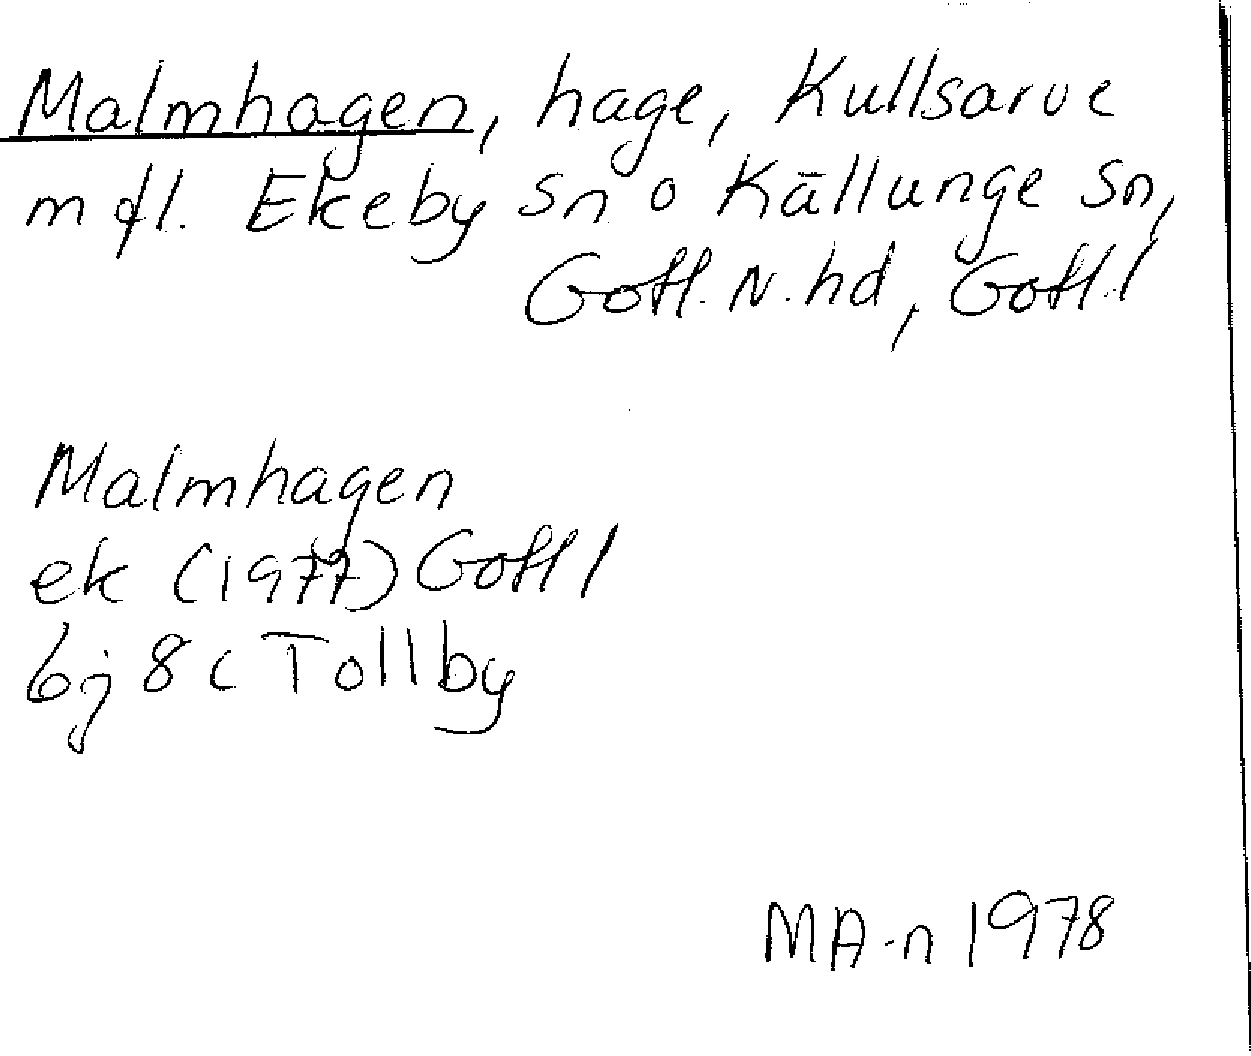 Malmhagen, hage, Kullsarve
m fl. Ekeby sn o Källunge sn,
Gotl. N. hd, Gotl. l
Malmhagen
ek (1977) Gotl l
6j 8c Tollby
MA-n 1978